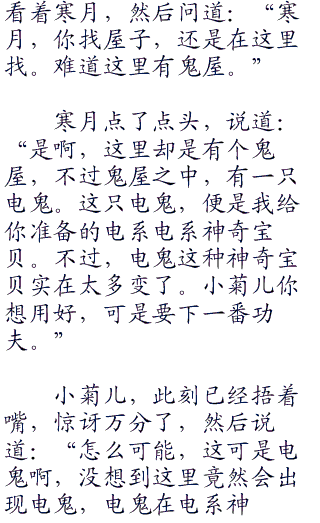 看着寒月，然后问道：“寒
月，你找屋子，还是在这里
找。难道这里有鬼屋。”
寒月点了点头，说道：
“是啊，这里却是有个鬼
屋，不过鬼屋之中，有一只
电鬼。这只电鬼，便是我给
你准备的电系电系神奇宝
贝。不过，电鬼这种神奇宝
贝实在太多变了。小菊儿你
想用好，可是要下一番功
夫。”
小菊儿，此刻已经捂着
嘴，惊讶万分了，然后说
道：“怎么可能，这可是电
鬼啊，没想到这里竟然会出
现电鬼，电鬼在电系神